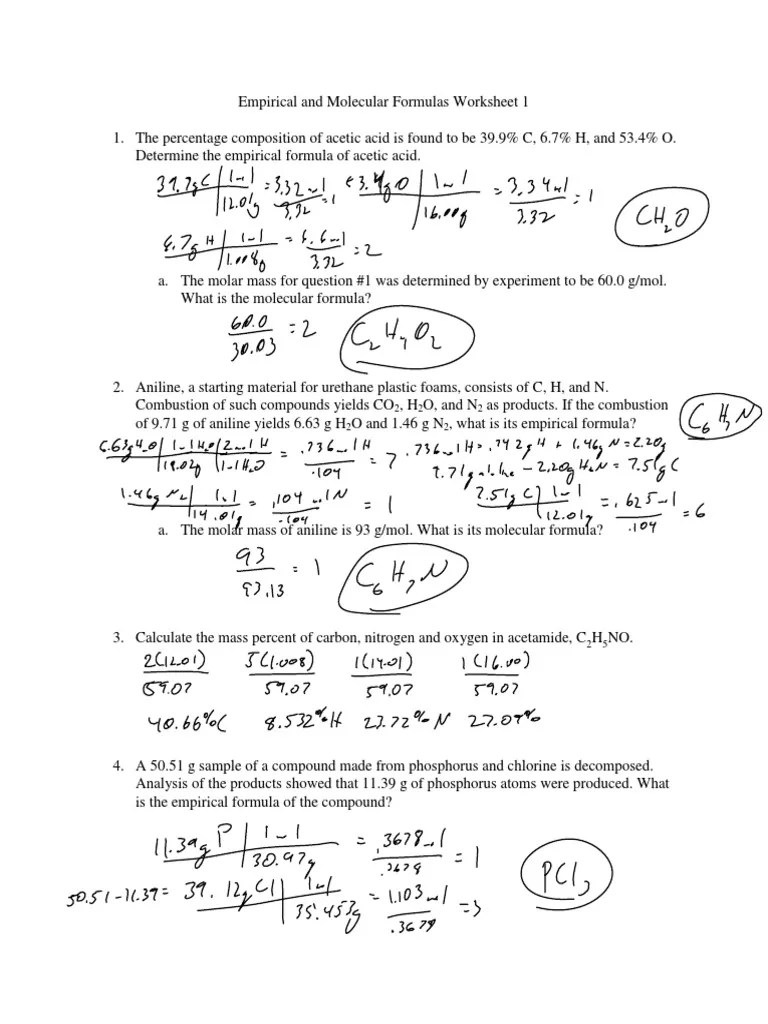 Empirical and Molecular Formulas Worksheet 1
1. The percentage composition of acetic acid is found to be 39.9% C, 6.7% H, and 53.4% O.
Determine the empirical formula of acetic acid.
39.9g C | 1 mol = 3.32 mol = 1 53.4g O | 1 mol = 3.34 mol = 1
12.01g 3.32 16.00g 3.32
CH₂O
6.7g H | 1 mol = 6.6 mol = 2
1.008g 3.32
a. The molar mass for question #1 was determined by experiment to be 60.0 g/mol.
What is the molecular formula?
60.0 = 2
30.03
C₂H₄O₂
2. Aniline, a starting material for urethane plastic foams, consists of C, H, and N.
Combustion of such compounds yields CO₂, H₂O, and N₂ as products. If the combustion
of 9.71 g of aniline yields 6.63 g H₂O and 1.46 g N₂, what is its empirical formula?
C₆H₇N
6.63g H₂O | 1 mol H₂O | 2 mol H = .736 mol H = 7 .736 mol H = .742g H + 1.46g N = 2.20g
18.02g | 1 mol H₂O .104 9.71g aniline - 2.20g H+N = 7.51g C
1.46g N₂ | 1 mol = .104 mol N = 1 7.51g C | 1 mol = .625 mol = 6
14.01g .104 12.01g .104
a. The molar mass of aniline is 93 g/mol. What is its molecular formula?
93 = 1
93.13
C₆H₇N
3. Calculate the mass percent of carbon, nitrogen and oxygen in acetamide, C₂H₅NO.
2(12.01) 5(1.008) 1(14.01) 1(16.00)
59.07 59.07 59.07 59.07
40.66% C 8.532% H 23.72% N 27.09%
4. A 50.51 g sample of a compound made from phosphorus and chlorine is decomposed.
Analysis of the products showed that 11.39 g of phosphorus atoms were produced. What
is the empirical formula of the compound?
11.39g P | 1 mol = .3678 mol = 1
30.97g .3678
PCl₃
50.51 - 11.39 = 39.12g Cl | 1 mol = 1.103 mol = 3
35.453g .3678